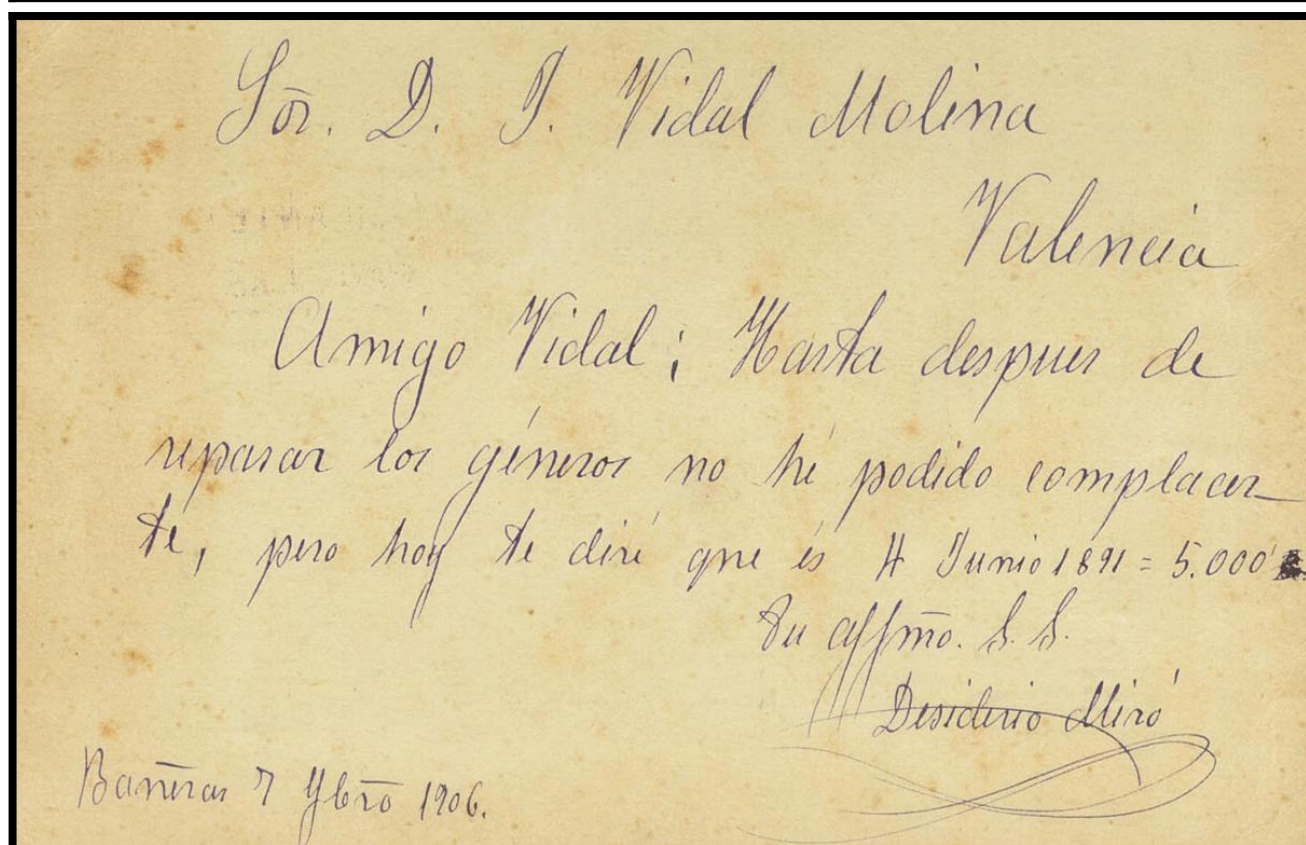 Sör. D. J. Vidal Molina
Valencia
Amigo Vidal; Hasta despues de
repasar los géneros no hé podido complacer
té, pero hoy te diré que és 4 Junio 1891 = 5.000
Tu affmo. S. S.
Desiderio Miró
Bañeras 7 9bro 1906.